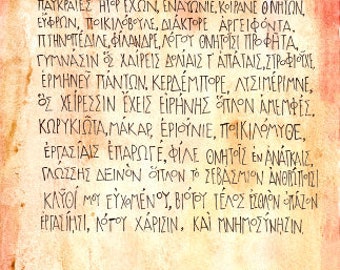 ΠΑΓΚΡΑΤΕΣ ΗΤΟΡ ΕΧΩΝ, ΕΝΑΓΩΝΙΕ, ΚΟΙΡΑΝΕ ΘΝΗΤΩΝ,
ΕΥΦΡΩΝ, ΠΟΙΚΙΛΟΒΟΥΛΕ, ΔΙΑΚΤΟΡΕ ΑΡΓΕΙΦΟΝΤΑ,
ΠΤΗΝΟΠΕΔΙΛΕ, ΦΙΛΑΝΔΡΕ, ΛΟΓΟΥ ΘΝΗΤΟΙΣΙ ΠΡΟΦΗΤΑ,
ΓΥΜΝΑΣΙΝ ὋΣ ΧΑΙΡΕΙΣ ΔΟΛΙΑΙΣ Τ' ΑΠΑΤΑΙΣ, ΣΤΡΟΦΙΟΥΧΕ,
ΕΡΜΗΝΕΥ ΠΑΝΤΩΝ, ΚΕΡΔΕΜΠΟΡΕ, ΛΥΣΙΜΕΡΙΜΝΕ,
ὋΣ ΧΕΙΡΕΣΣΙΝ ΕΧΕΙΣ ΕΙΡΗΝΗΣ ὉΠΛΟΝ ΑΜΕΜΦΕΣ,
ΚΩΡΥΚΙΩΤΑ, ΜΑΚΑΡ, ΕΡΙΟΥΝΙΕ, ΠΟΙΚΙΛΟΜΥΘΕ,
ΕΡΓΑΣΙΑΙΣ ΕΠΑΡΩΓΕ, ΦΙΛΕ ΘΝΗΤΟΙΣ ΕΝ ΑΝΑΓΚΑΙΣ,
ΓΛΩΣΣΗΣ ΔΕΙΝΟΝ ὉΠΛΟΝ ΤΟ ΣΕΒΑΣΜΙΟΝ ΑΝΘΡΩΠΟΙΣΙ
ΚΛΥΘΙ ΜΟΥ ΕΥΧΟΜΕΝΟΥ, ΒΙΟΤΟΥ ΤΕΛΟΣ ΕΣΘΛΟΝ ΟΠΑΖΩΝ
ΕΡΓΑΣΙΗΣΙ, ΛΟΓΟΥ ΧΑΡΙΣΙΝ, ΚΑΙ ΜΝΗΜΟΣΥΝΗΣΙΝ.